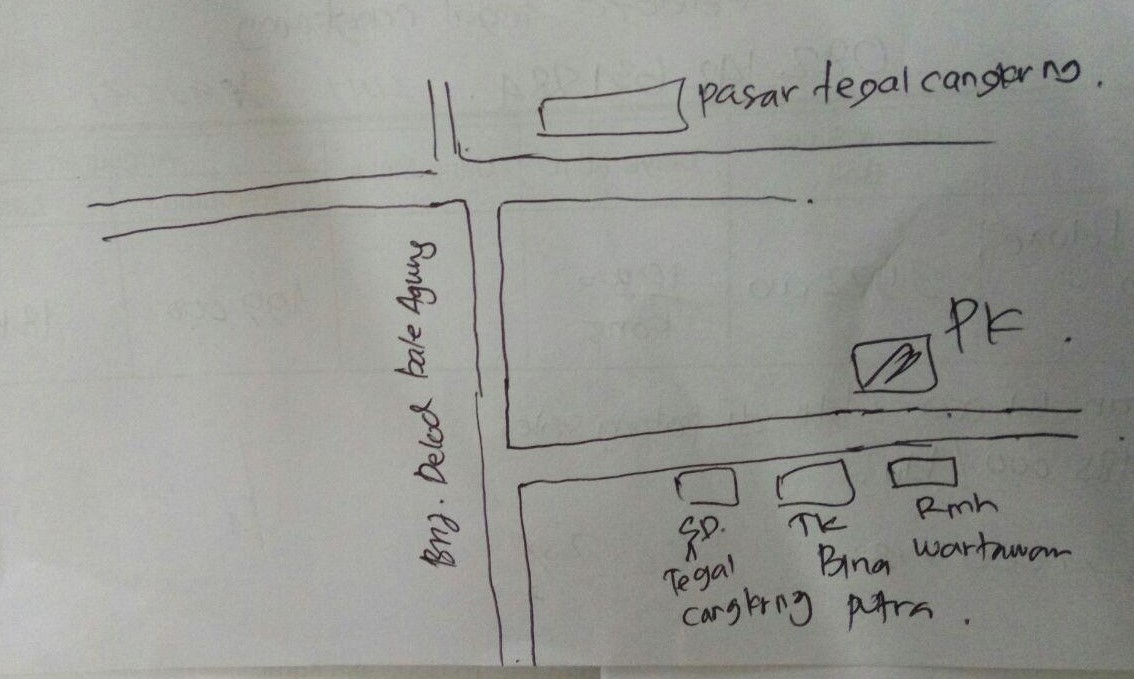 pasar tegal cangkrng.
Bnj. Delod bale Agung
PK.
SD.
Tegal
cangkrng
TK
Bina
putra.
Rmh
wartawan